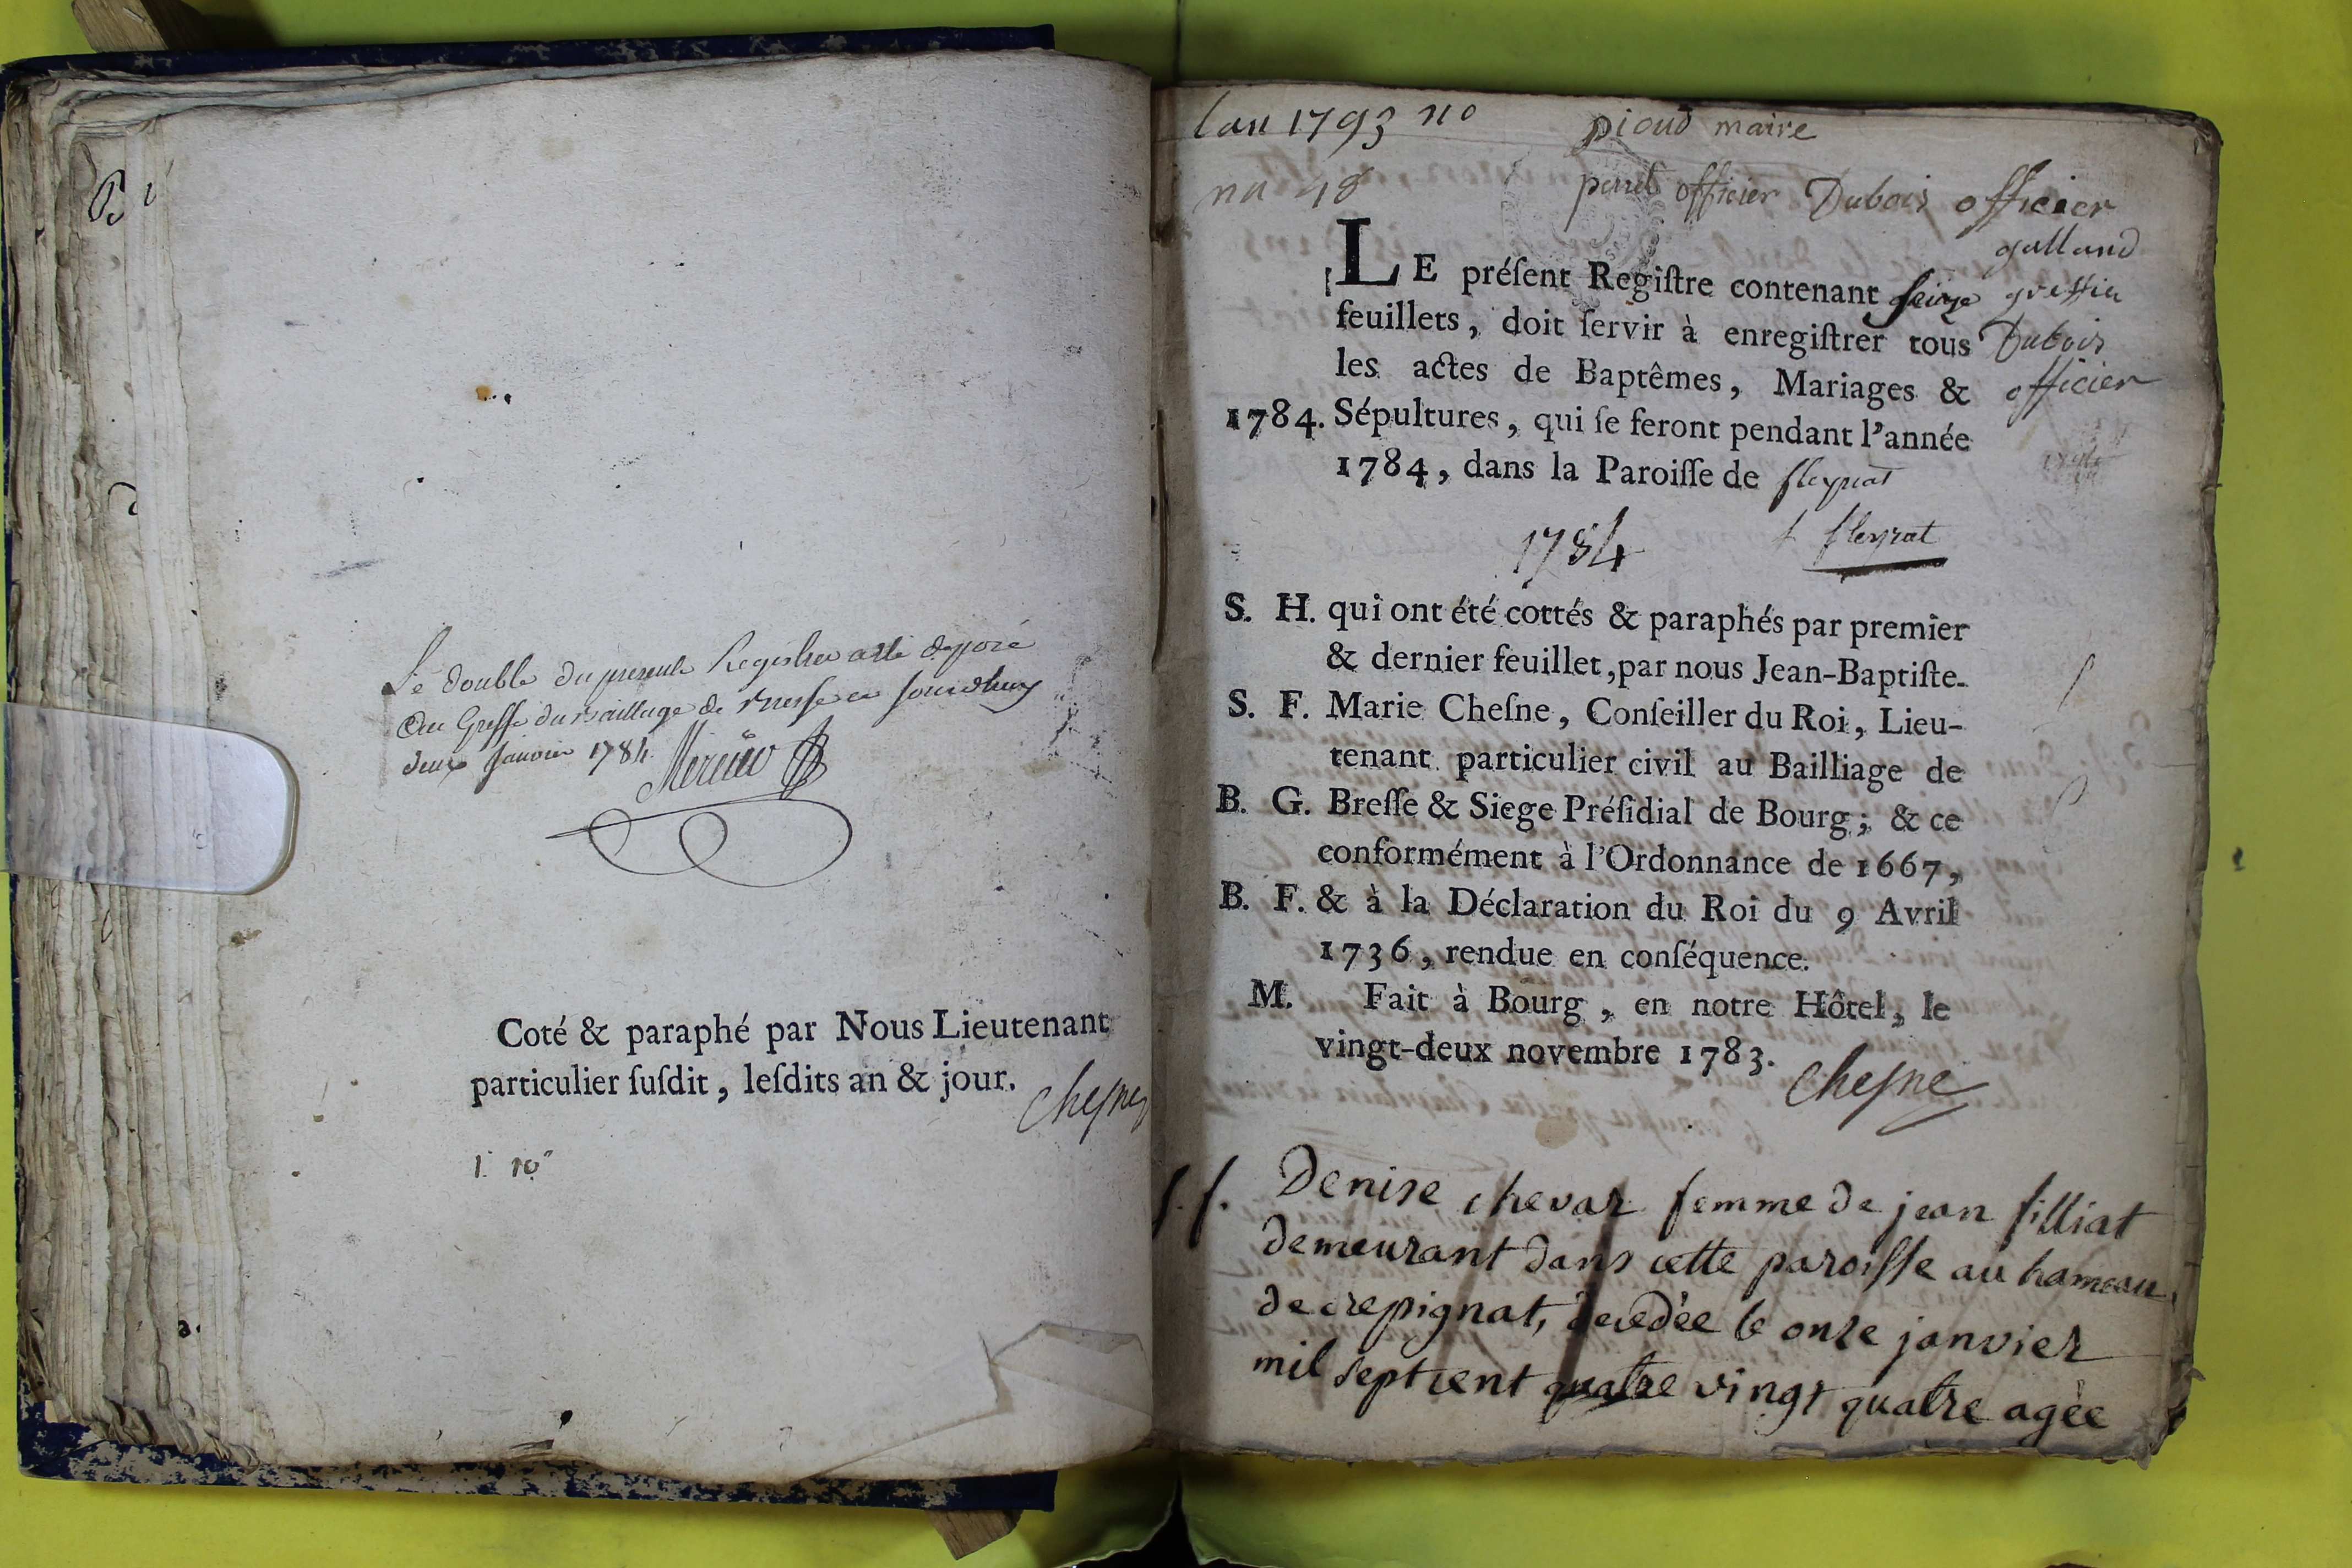 Le double du present Registre a été deposé
Au Greffe du Bailliage de Bresse ce jourdhuy
deux Janvier 1784.
Coté & paraphé par Nous Lieutenant
particulier ſuſdit, leſdits an & jour.
Cheſne
lan 1793 no
pioud maire
perret officier Dubois officier
galland
greffier
Dubois
officier
LE préſent Regiſtre contenant ſeize
feuillets, doit ſervir à enregiſtrer tous
les actes de Baptêmes, Mariages &
1784. Sépultures, qui ſe feront pendant l'année
1784, dans la Paroiſſe de fleyriat
1784 fleyriat
S. H. qui ont été cottés & paraphés par premier
& dernier feuillet, par nous Jean-Baptiſte-
S. F. Marie Cheſne, Conſeiller du Roi, Lieu-
tenant particulier civil au Bailliage de
B. G. Breſſe & Siege Préſidial de Bourg; & ce
conformément à l'Ordonnance de 1667,
B. F. & à la Déclaration du Roi du 9 Avril
1736, rendue en conſéquence.
M. Fait à Bourg, en notre Hôtel, le
vingt-deux novembre 1783.
Cheſne
ſ. f. Denise chevar femme de jean filliat
demeurant dans cette paroiſſe au hameau
de crepignat, decedée le onze janvier
mil sept cent quatre vingt quatre agée